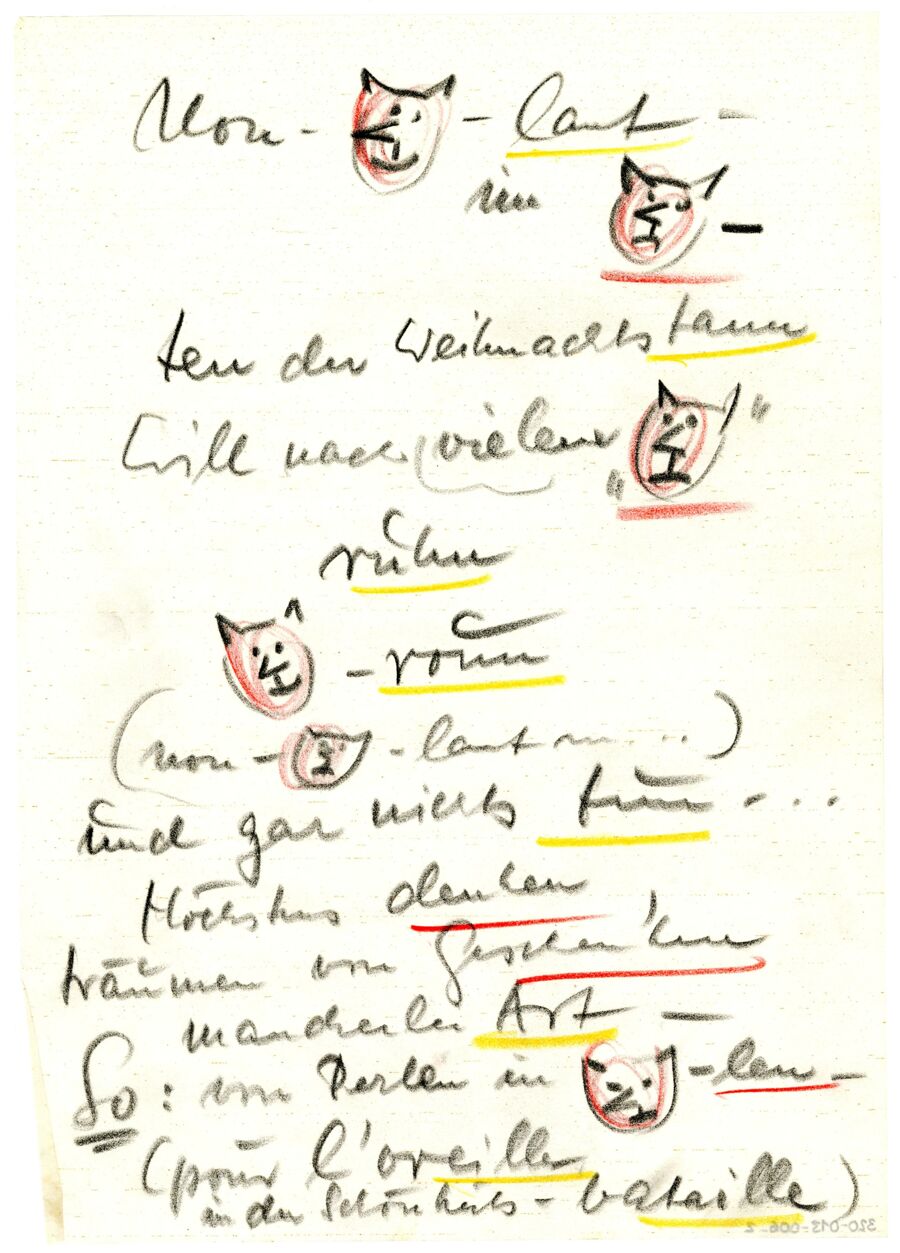 Von - - laut -
im -
ten der Weihnachtstann
Will nach vielem " "
ruhn
-
(von - - laut ...)
und gar nichts tun - ...
Höchstens denken
träumen von Geschenken
mancherlei Art —
So: von Perlen in - len -
(pour l'oreille
in der Schönheits - bataille)
320-013-006_2